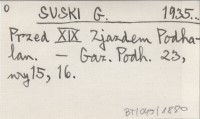 0
SUSKI G. 1935...
Przed XIX Zjazdem Podha-
lan. — Gaz. Podh. 23,
nry 15, 16.
BT/045/1880